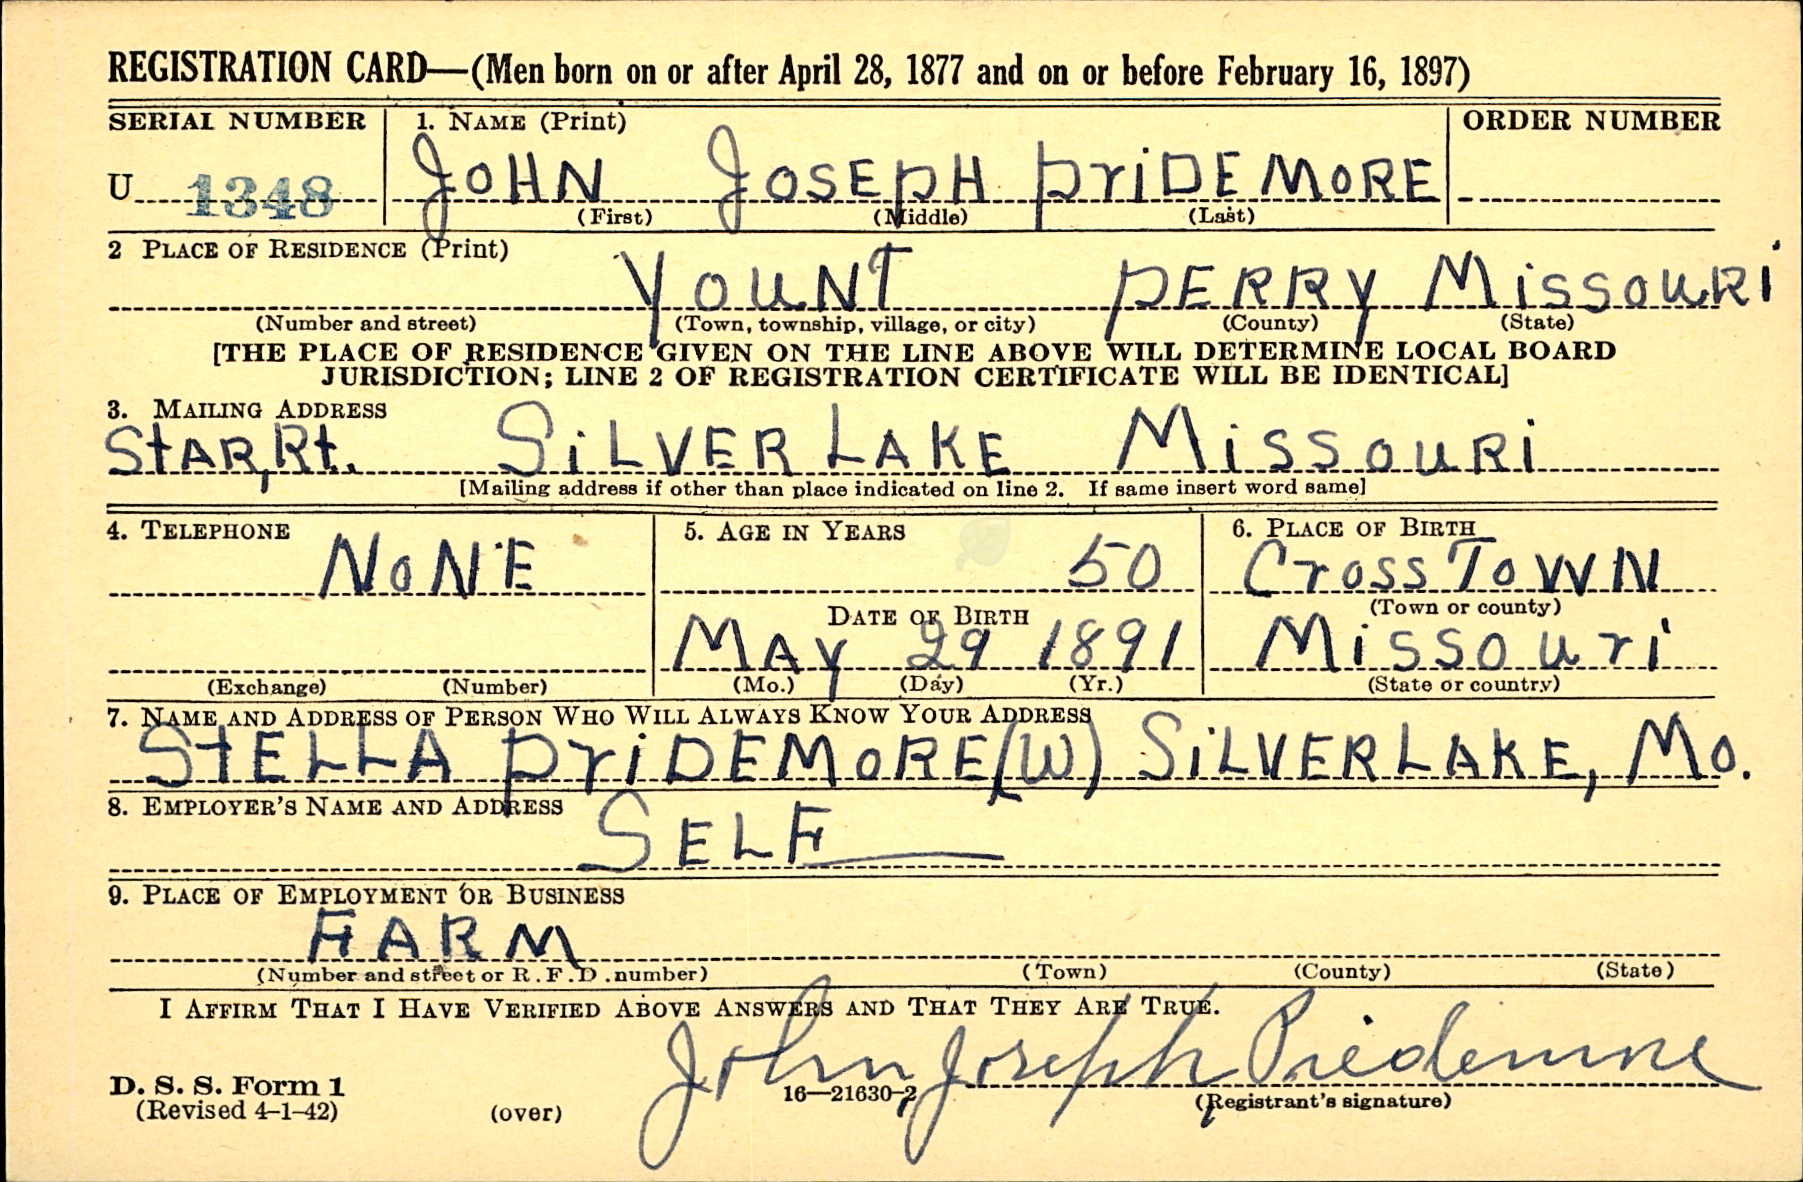 REGISTRATION CARD—(Men born on or after April 28, 1877 and on or before February 16, 1897)
SERIAL NUMBER 1. NAME (Print) ORDER NUMBER
U 1348 JOHN JOSEPH PriDEMORE
(First) (Middle) (Last)
2 PLACE OF RESIDENCE (Print)
YOUNT PERRY MissouRi
(Number and street) (Town, township, village, or city) (County) (State)
[THE PLACE OF RESIDENCE GIVEN ON THE LINE ABOVE WILL DETERMINE LOCAL BOARD
JURISDICTION; LINE 2 OF REGISTRATION CERTIFICATE WILL BE IDENTICAL]
3. MAILING ADDRESS
StAR, Rt. SiLVER LAKE MissouRi
[Mailing address if other than place indicated on line 2. If same insert word same]
4. TELEPHONE 5. AGE IN YEARS 6. PLACE OF BIRTH
NoNE 50 Cross ToWN
DATE OF BIRTH (Town or county)
MAY 29 1891 Missouri
(Exchange) (Number) (Mo.) (Day) (Yr.) (State or country)
7. NAME AND ADDRESS OF PERSON WHO WILL ALWAYS KNOW YOUR ADDRESS
StELLA PriDEMORE (W) SiLVER LAKE, Mo.
8. EMPLOYER'S NAME AND ADDRESS
SELF
9. PLACE OF EMPLOYMENT OR BUSINESS
FARM
(Number and street or R.F.D. number) (Town) (County) (State)
I AFFIRM THAT I HAVE VERIFIED ABOVE ANSWERS AND THAT THEY ARE TRUE.
John Joseph Pridemore
D. S. S. Form 1
(Revised 4-1-42) (over) 16—21630-2 (Registrant's signature)